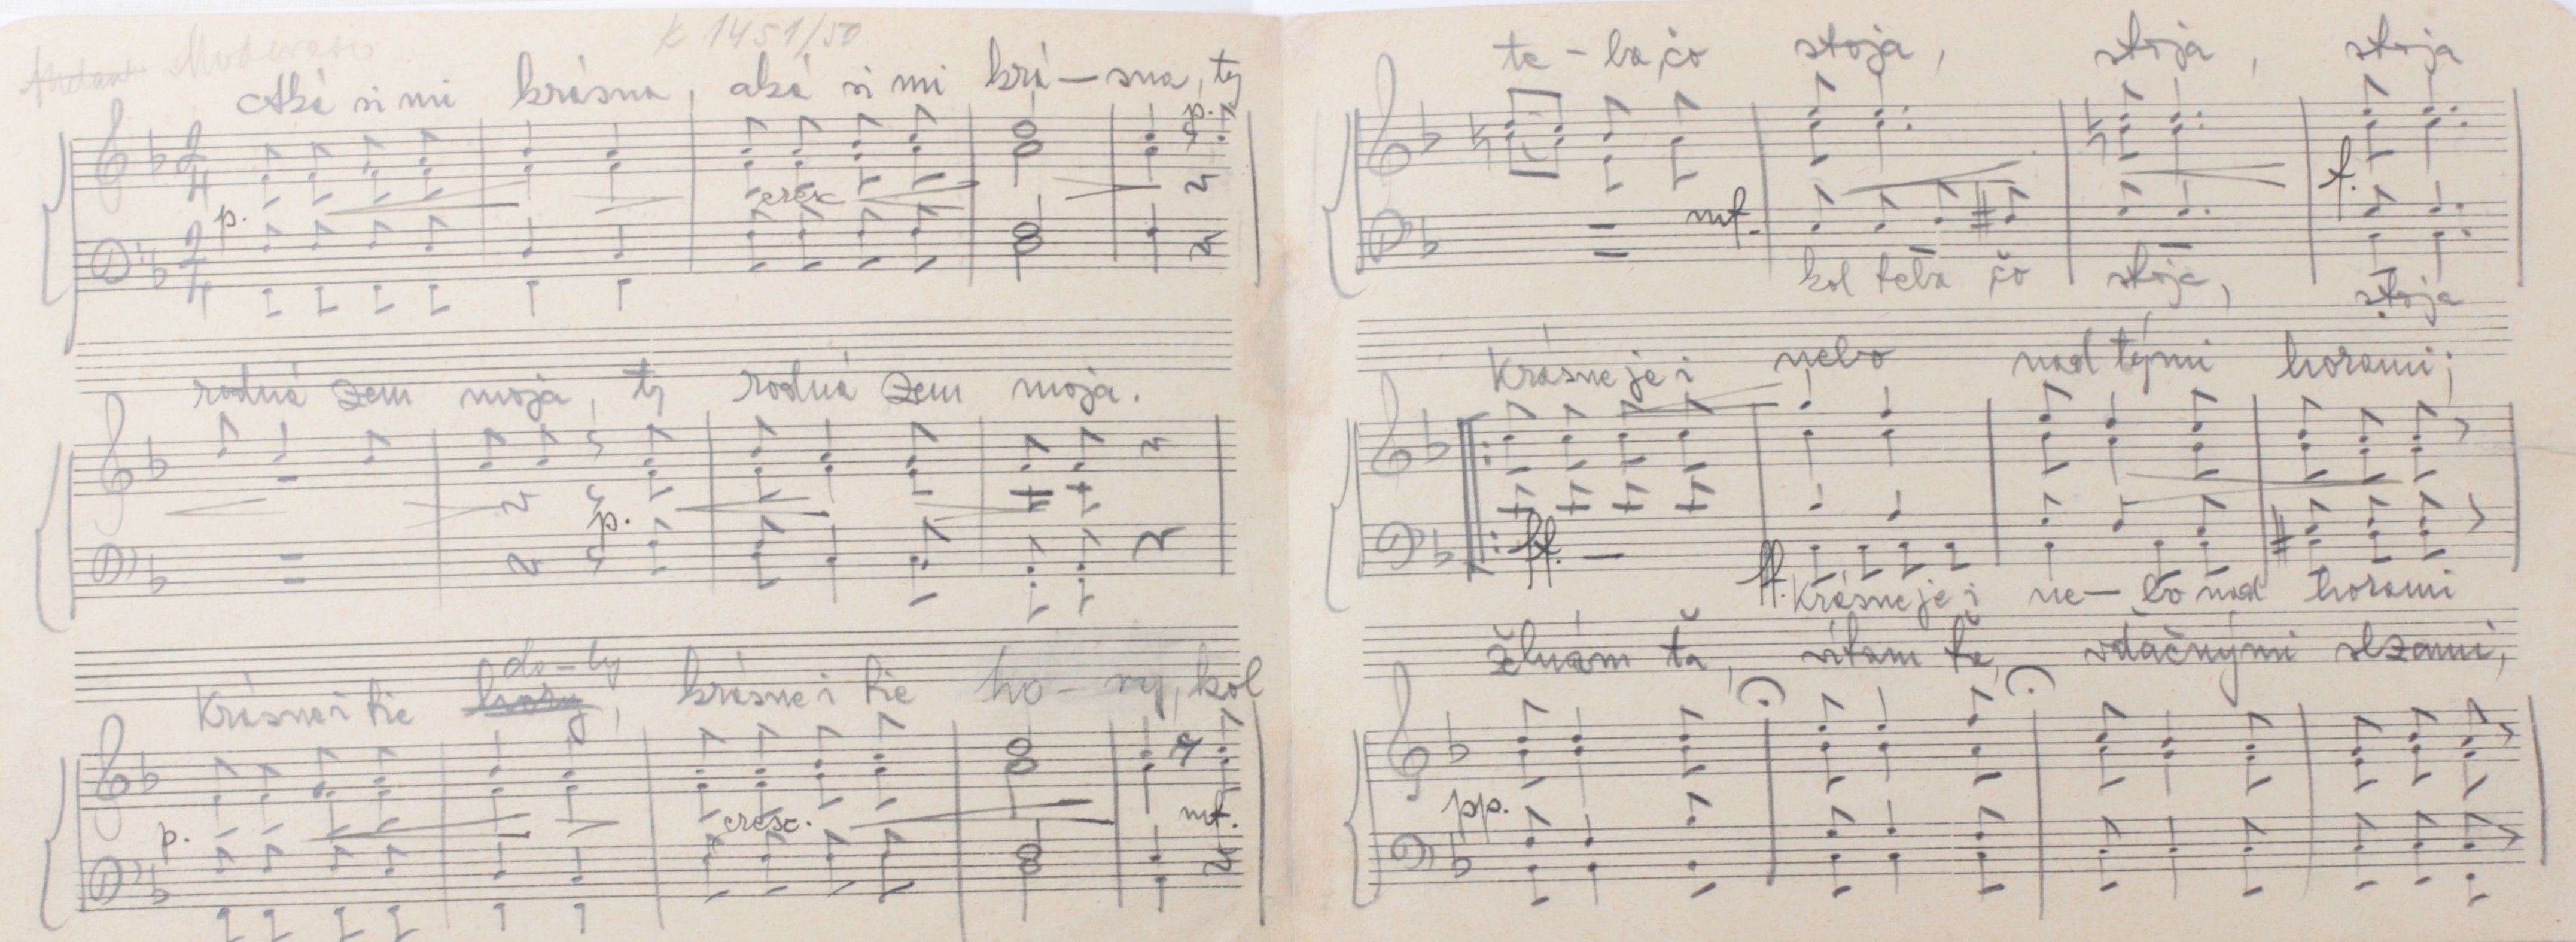 K 1451/50
Andante Moderato
Aká si mi krásna, aká si mi krá – sna, ty
p.
p. cresc
rodná zem moja, ty rodná zem moja.
p.
Krásne i tie hory, do-ly krásne i tie ho – ry, kol
p. cresc. mf.
te – ba, čo stoja, stoja, stoja
mf. f.
kol teba čo stoja, stoja
Krásne je i nebo nad tými horami;
ff. ff.
Krásne je i ne – bo nad horami
žehnám ťa, vítam ťa, vďačnými slzami,
pp.